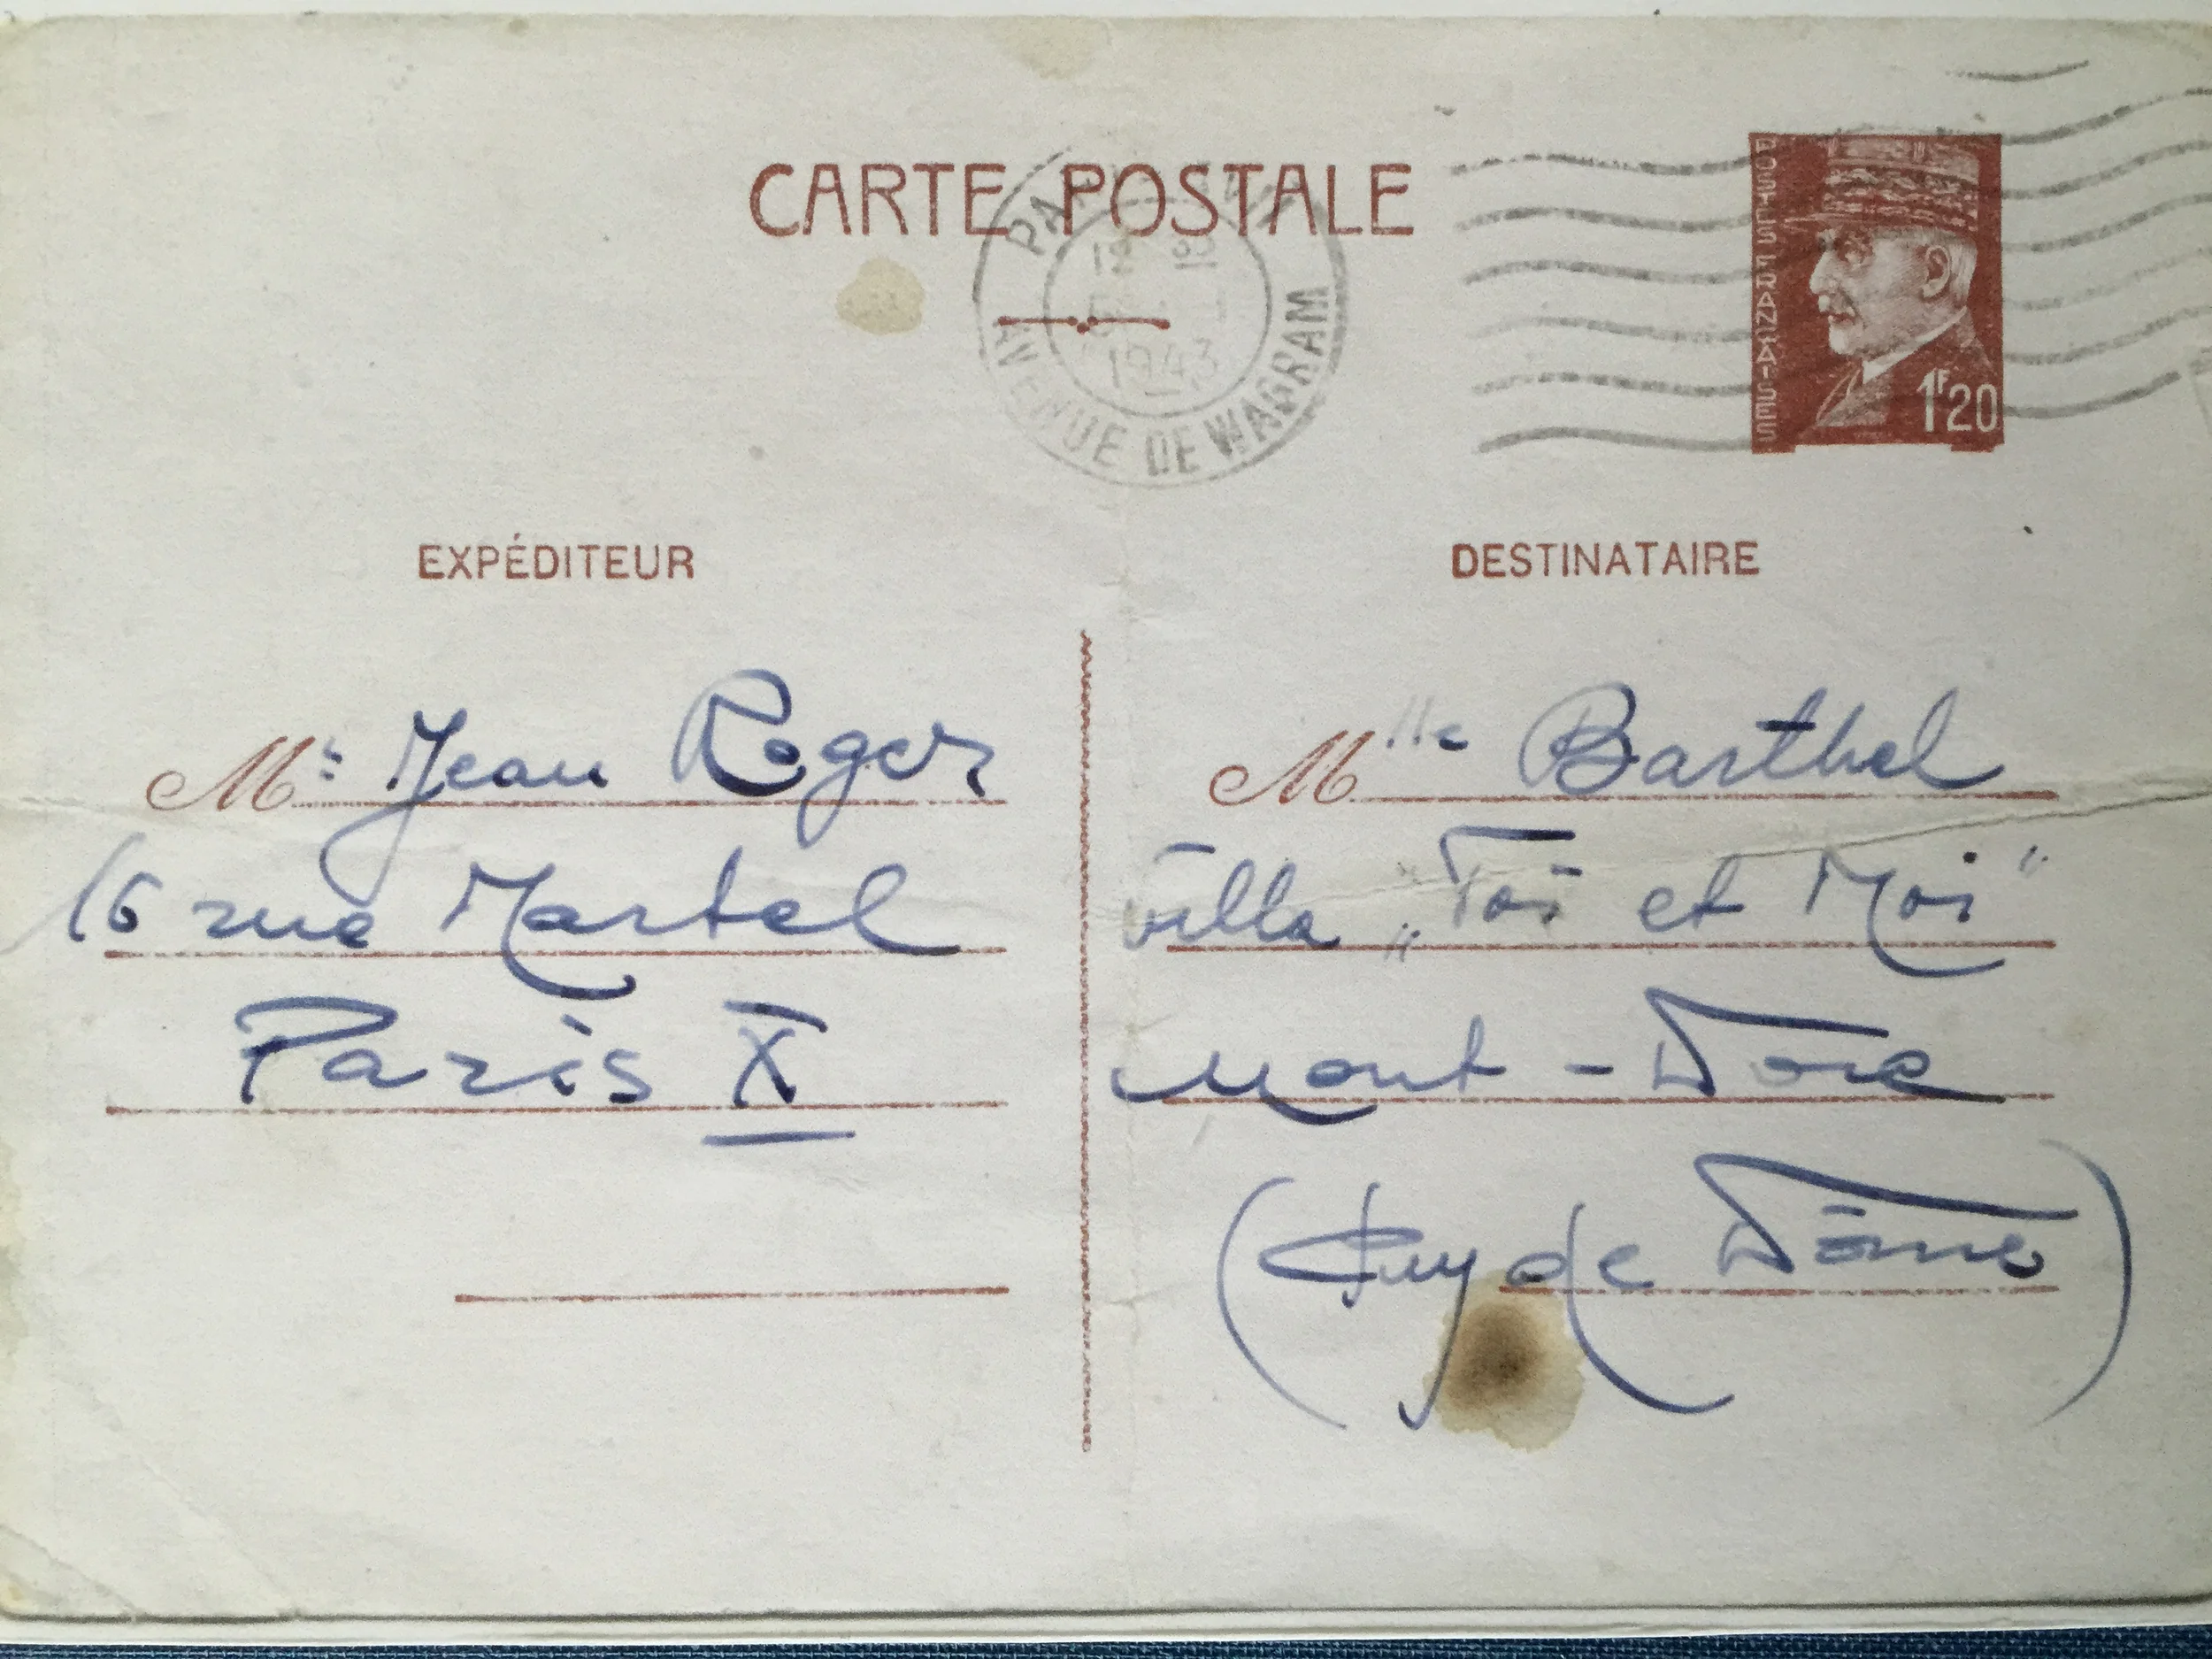 CARTE POSTALE
AVENUE DE WAGRAM
1943
POSTES FRANÇAISES
1F20
EXPÉDITEUR
Mr Jean Roger
16 rue Martel
Paris X
DESTINATAIRE
Mlle Barthel
Villa „Toi et Moi"
Mont-Dore
(Puy de Dôme)